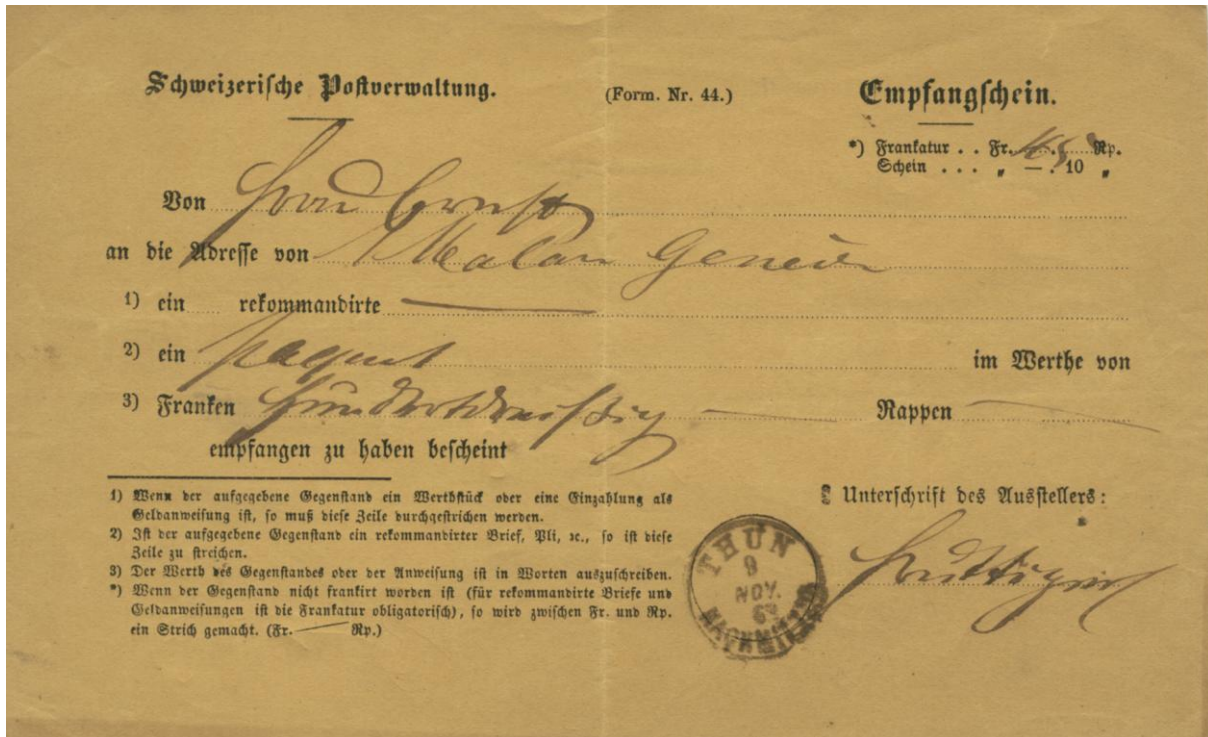 Schweizerische Postverwaltung. (Form. Nr. 44.) Empfangschein.
*) Frankatur . . Fr. . . Rp.
Schein . . . „ — . 10 „
Von Frau Ernst
an die Adresse von Malan Genève
1) ein rekommandirte
2) ein im Werthe von
3) Franken Hundertdreißig — Rappen —
empfangen zu haben bescheint
1) Wenn der aufgegebene Gegenstand ein Werthstück oder eine Einzahlung als
Geldanweisung ist, so muß diese Zeile durchgestrichen werden.
2) Ist der aufgegebene Gegenstand ein rekommandirter Brief, Pli, ꝛc., so ist diese
Zeile zu streichen.
3) Der Werth des Gegenstandes oder der Anweisung ist in Worten auszuschreiben.
*) Wenn der Gegenstand nicht frankirt worden ist (für rekommandirte Briefe und
Geldanweisungen ist die Frankatur obligatorisch), so wird zwischen Fr. und Rp.
ein Strich gemacht. (Fr. — Rp.)
Unterschrift des Ausstellers:
THUN
9
NOV.
NACHMITTAG